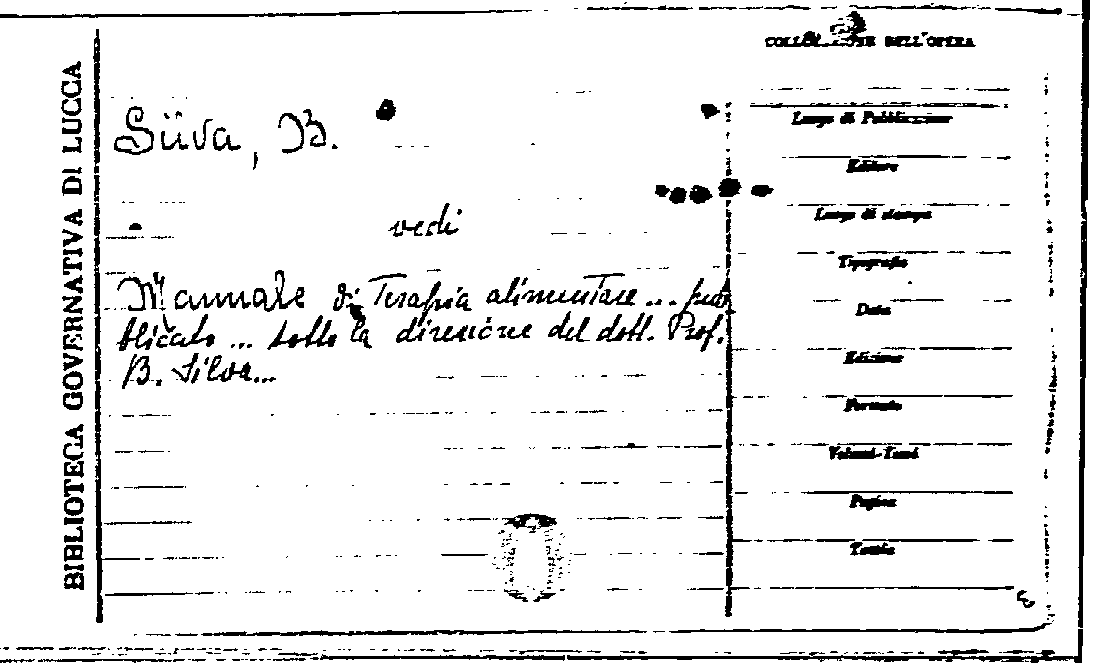 BIBLIOTECA GOVERNATIVA DI LUCCA
Silva, B.
vedi
Manuale di Terapia alimentare ... pub
blicato ... sotto la direzione del dott. Prof.
B. Silva...
COLLOCAZIONE DELL'OPERA
Luogo di Pubblicazione
Editore
Luogo di stampa
Tipografia
Data
Edizione
Formato
Volumi-Tomi
Pagine
Tavole